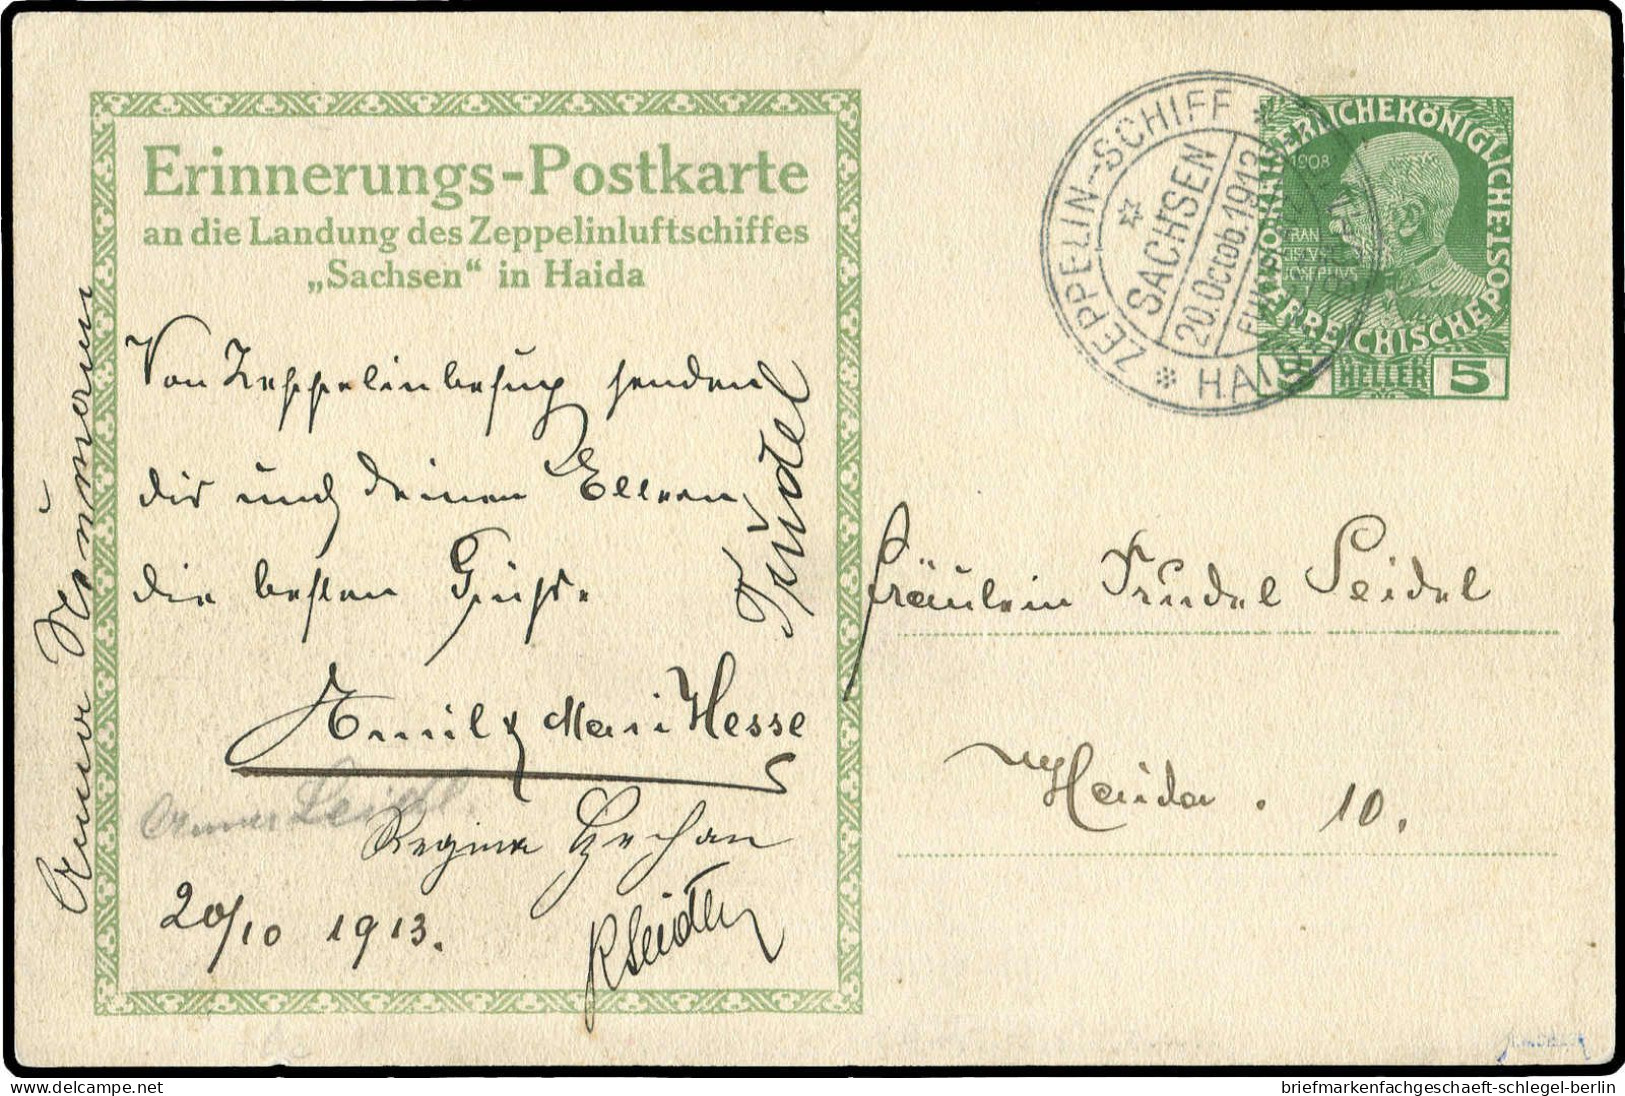 Erinnerungs-Postkarte
an die Landung des Zeppelinluftschiffes
„Sachsen“ in Haida
Von Zeppelinbesuch senden
dir und deinen Eltern
die besten Grüße.
Trudel
Emil & Mari Hesse
Seidel.
Regina
20/10 1913.
Anna
ZEPPELIN-SCHIFF
SACHSEN
20.Octob.1913
HAIDA
1908
KAISERLICHEKÖNIGLICHE
ÖSTERREICHISCHEPOST
FRAN
CISCVS
JOSEPHVS
5 HELLER 5
Fräulein Trudel Seidel
Haida. 10.
briefmarkenfachgeschaeft-schlegel-berlin